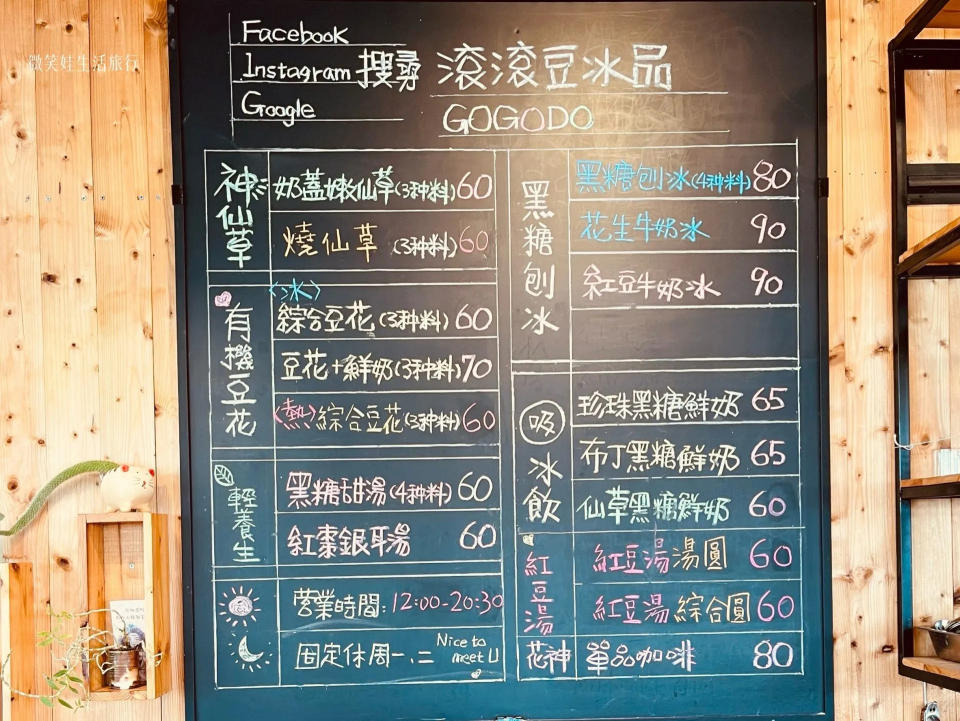 微笑娃生活旅行
Facebook
Instagram 搜尋 滾滾豆冰品
Google
GOGODO
神仙草
奶蓋嫩仙草(3种料) 60
燒仙草 (3种料) 60
有機豆花
〈冰〉
綜合豆花(3种料) 60
豆花+鮮奶(3种料) 70
〈熱〉綜合豆花(3种料) 60
輕養生
黑糖甜湯(4种料) 60
紅棗銀耳湯 60
營業時間:12:00-20:30
固定休周一、二 Nice to
meet U
黑糖刨冰
黑糖刨冰(4种料) 80
花生牛奶冰 90
紅豆牛奶冰 90
吸冰飲
珍珠黑糖鮮奶 65
布丁黑糖鮮奶 65
仙草黑糖鮮奶 60
紅豆湯
紅豆湯湯圓 60
紅豆湯綜合圓 60
花神 單品咖啡 80